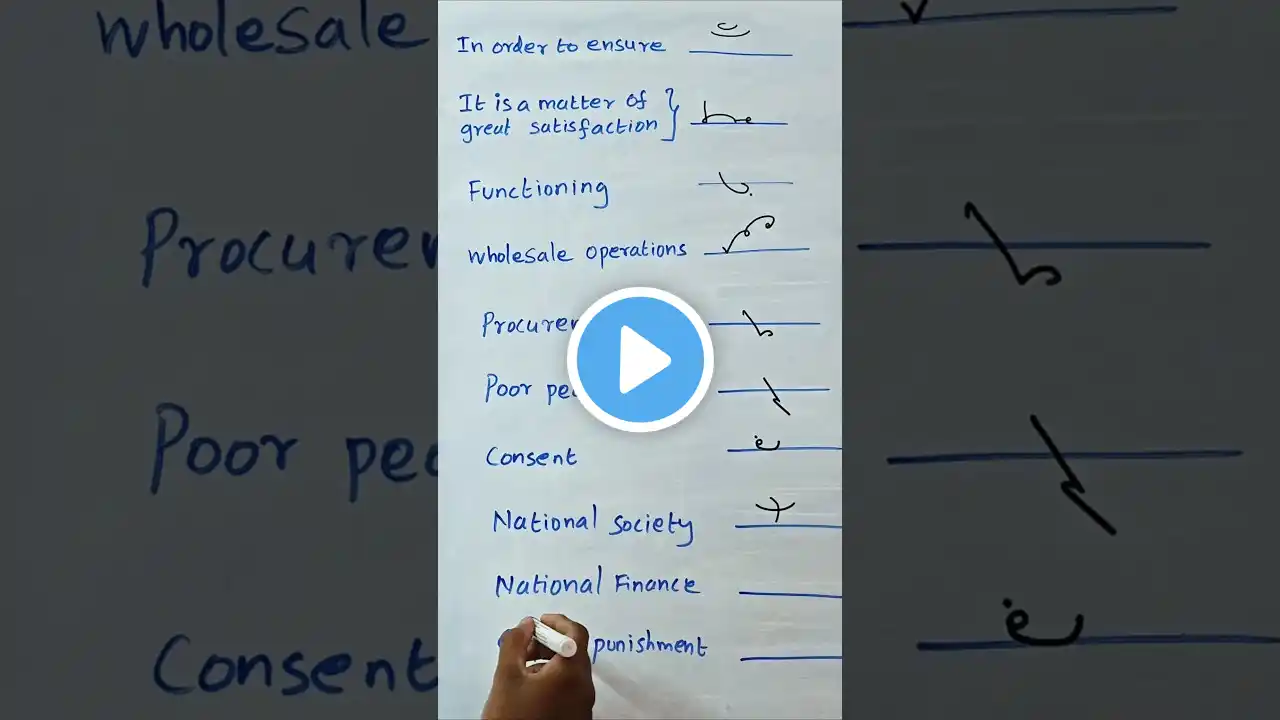 wholesale
In order to ensure
It is a matter of
great satisfaction
Functioning
wholesale operations
Procurem
Poor peo
Consent
National Society
National Finance
punishment